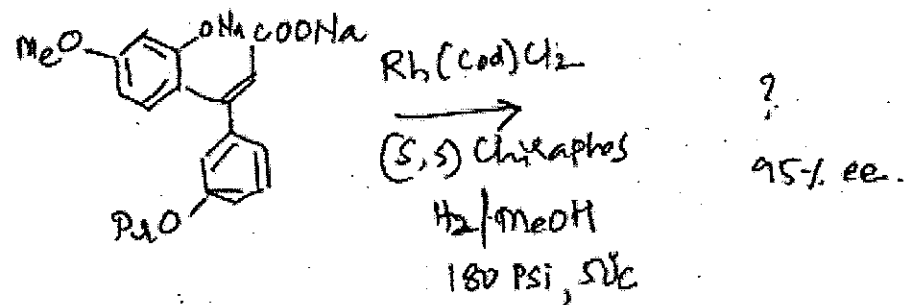 MeO ONa COONa
PrO
Rh(Cod)Cl2
(S,S) Chiraphos
H2/MeOH
180 Psi, 50°C
?
95% ee.